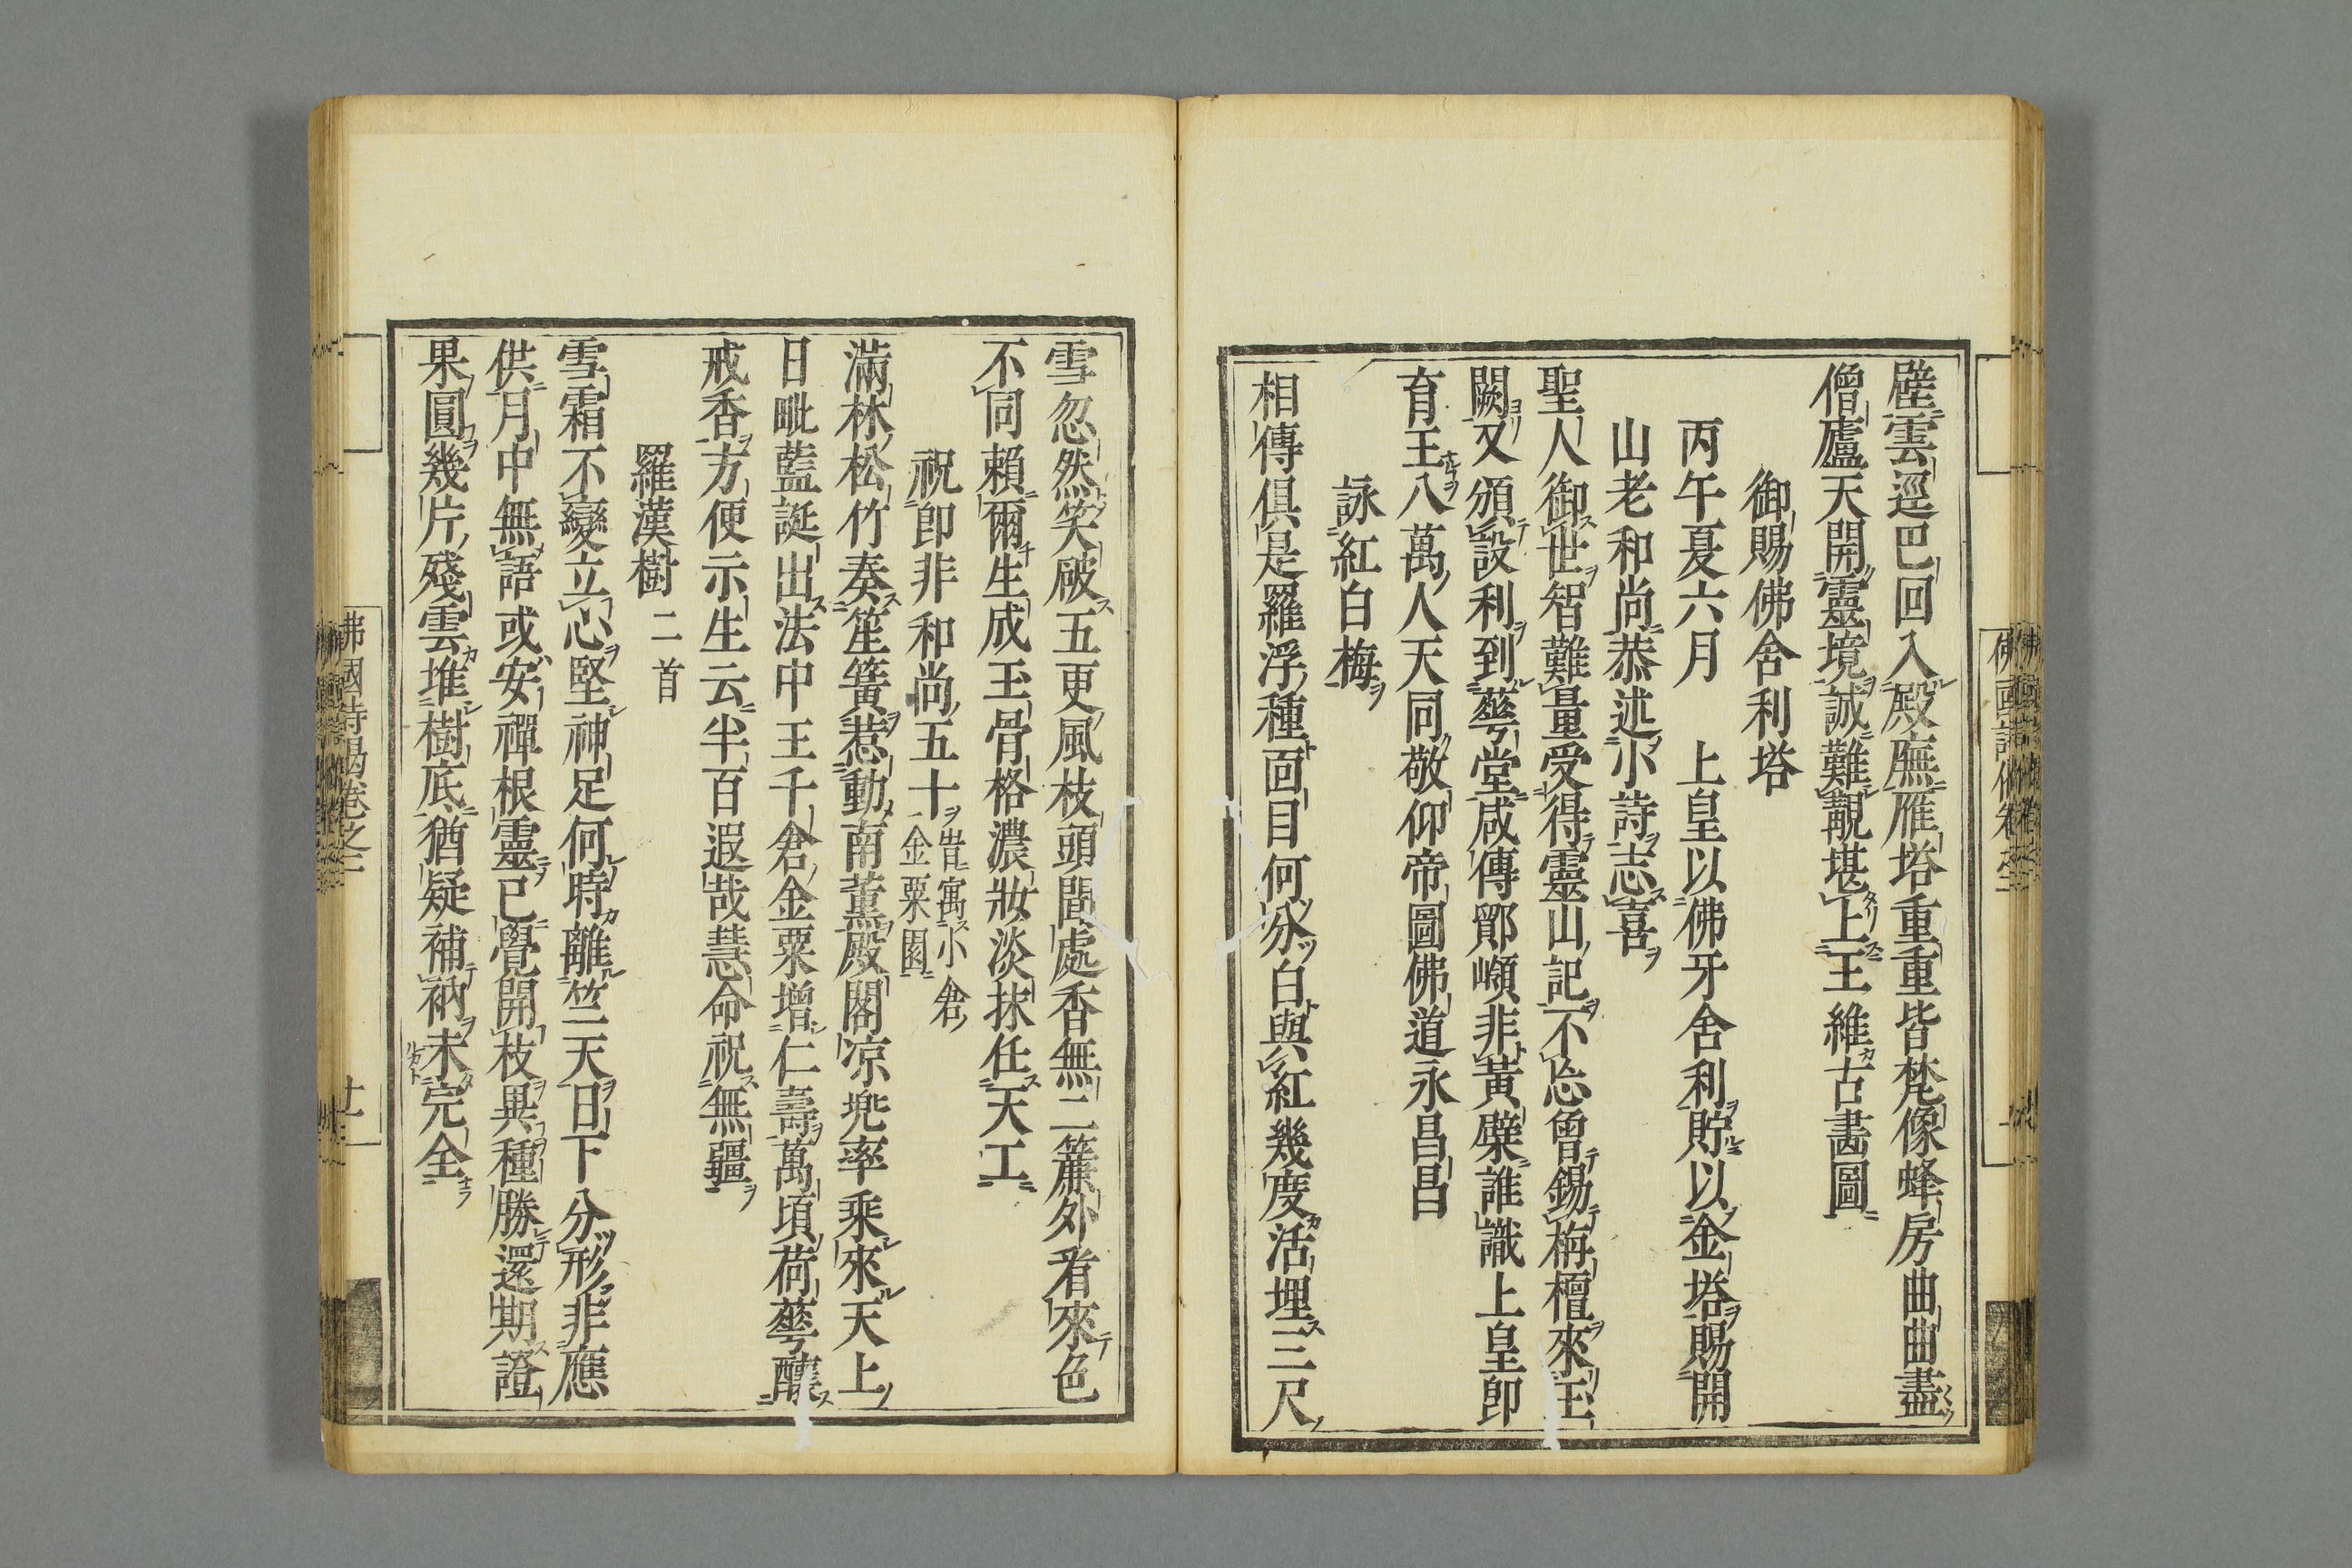 壁雲逕巴回入殿廡雁塔重重皆梵像蜂房曲曲盡
僧廬天開靈境誠難覯堪上王維古畵圖
御賜佛舍利塔
丙午夏六月　上皇以佛牙舍利貯以金塔賜開
山老和尚恭述小詩志喜
聖人御世智難量受得靈山記不忘曾錫栴檀來王
闕又頒設利到蕐堂咸傳鄮嶺非黃檗誰識上皇即
育王八萬人天同敬仰帝圖佛道永昌昌
詠紅白梅
相傳俱是羅浮種面目何分白與紅幾度活埋三尺
雪忽然笑破五更風枝頭聞處香無二簾外看來色
不同賴爾生成玉骨格濃妝淡抹任天工
祝即非和尚五十旹寓小倉
金粟園
滿林松竹奏笙簧惹動南薰殿閣凉兠率乘來天上
日毗藍誕出法中王千倉金粟增仁壽萬頃荷蕐釀
戒香方便示生云半百遐哉慧命祝無疆
羅漢樹二首
雪霜不變立心堅神足何時離竺天日下分形非應
供月中無語或安禪根靈已覺開枝異種勝還期證
果圓幾片殘雲堆樹底猶疑補衲未完全
佛國詩偈卷之三
十一